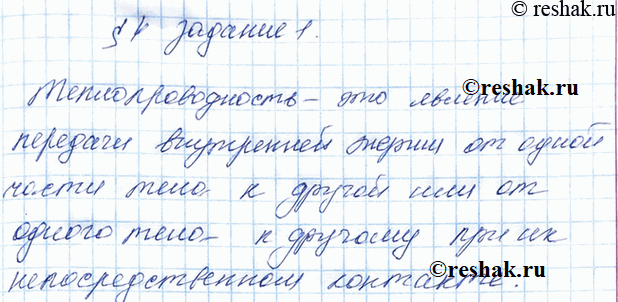 ©reshak.ru
§ 4 Задание 1.
Теплопроводность – это явление
©reshak.ru
передачи внутренней энергии от одной
части тела к другой или от
©reshak.ru
одного тела к другому при их
непосредственном контакте.
©reshak.ru